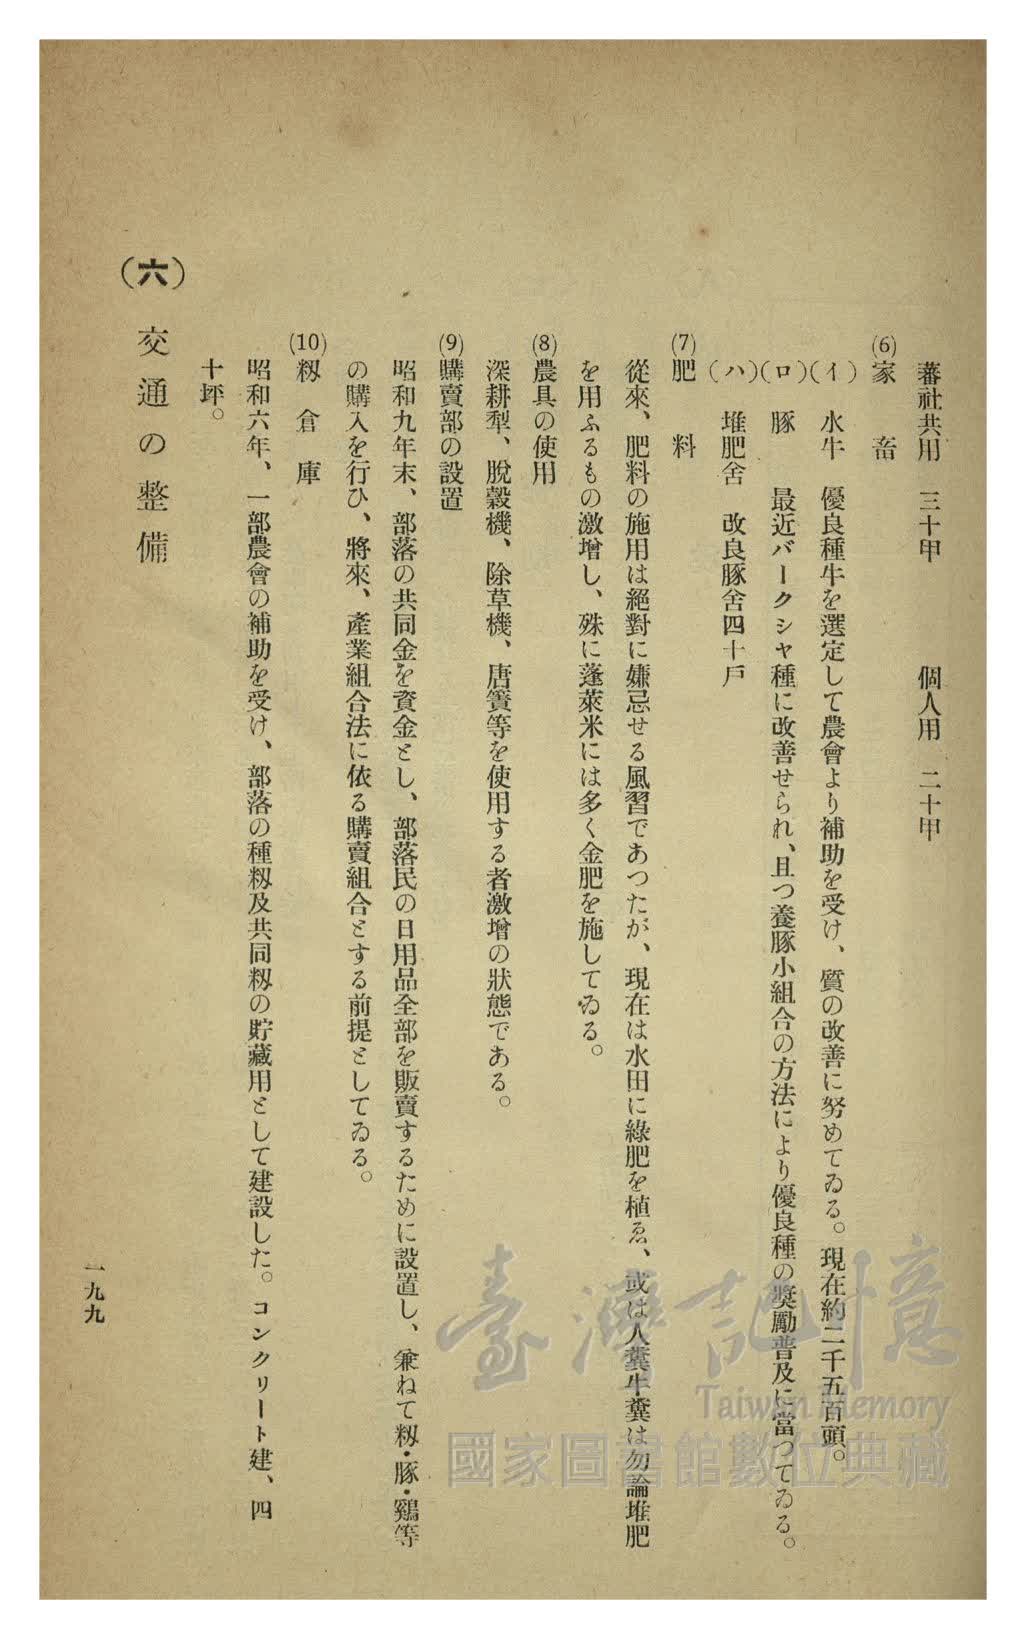 蕃社共用　三十甲　　個人用　二十甲
(6) 家　畜
(イ)　水牛　優良種牛を選定して農會より補助を受け、質の改善に努めてゐる。現在約二千五百頭。
(ロ)　豚　最近バークシヤ種に改善せられ、且つ養豚小組合の方法により優良種の奬勵普及に當つてゐる。
(ハ)　堆肥舍　改良豚舍四十戶
(7) 肥　料
從來、肥料の施用は絕對に嫌忌せる風習であつたが、現在は水田に綠肥を植ゑ、或は人糞牛糞は勿論堆肥
を用ふるもの激增し、殊に蓬萊米には多く金肥を施してゐる。
(8) 農具の使用
深耕犁、脫穀機、除草機、唐簀等を使用する者激增の狀態である。
(9) 購賣部の設置
昭和九年末、部落の共同金を資金とし、部落民の日用品全部を販賣するために設置し、兼ねて籾・豚・鷄等
の購入を行ひ、將來、產業組合法に依る購賣組合とする前提としてゐる。
(10) 籾　倉　庫
昭和六年、一部農會の補助を受け、部落の種籾及共同籾の貯藏用として建設した。コンクリート建、四
十坪。
(六)　交通の整備
一九九
臺灣記憶
Taiwan Memory
國家圖書館數位典藏